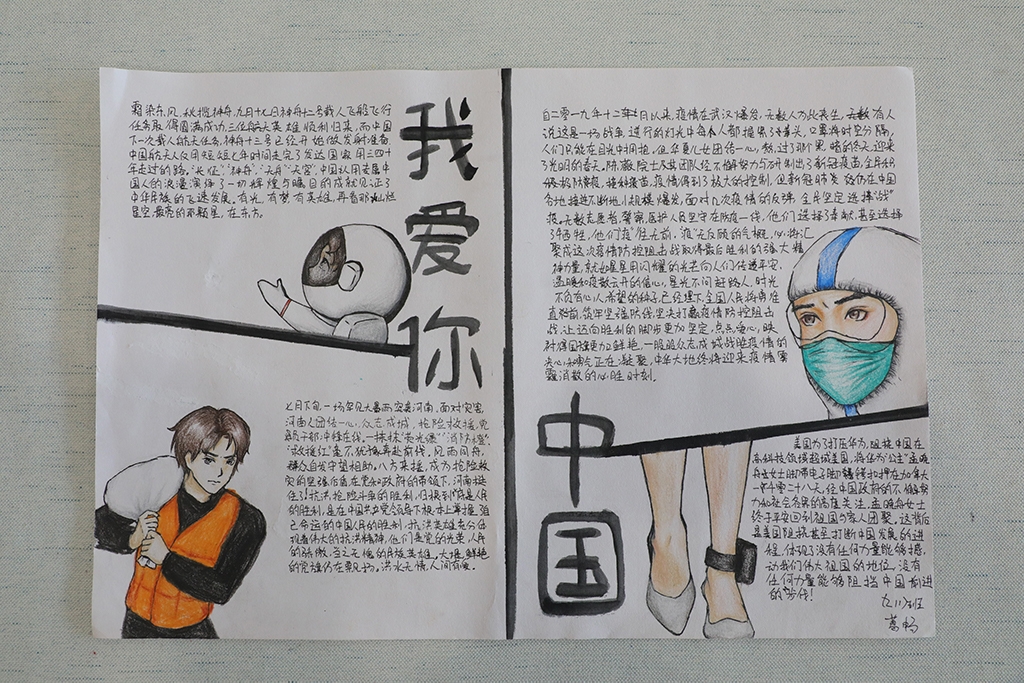 霜染东风，秋揽神舟，九月十七日神舟十二号载人飞船飞行
任务取得圆满成功，三位航天英雄顺利归来，而中国
下一次载人航天任务，神舟十三号已经开始做发射准备
中国航天人仅用短短七年时间走完了发达国家用三四十
年走过的路。“天和”“神舟”“天舟”“天宫”，中国以用专属中
国人的浪漫演绎了一切辉煌与瞩目的成就见证了
中华民族的飞速发展。有光，有梦有英雄，再看那灿烂
星空最亮的那颗星，在东方。
我
爱
你
中
国
七月下旬，一场罕见大暴雨突袭河南，面对灾害
河南人团结一心，众志成城，抢险救援，党
员干部，冲锋在线，一抹抹“荧光绿”“消防橙”
“救援红”毫不犹豫奔赴前线，风雨同舟，
群众自发守望相助，八方来援，成为抢险救
灾的坚强后盾在党和政府的带领下，河南抵
住了抗洪抢险斗争的胜利，归根到底是人民
的胜利，是在中国共产党领导下根本上掌握
己命运的中国人民的胜利，抗洪英雄充分体
现着伟大的抗洪精神，他们是党的光荣，人民
的骄傲，当之无愧的民族英雄。大堤，鲜艳
的党旗仍在飘扬。洪水无情，人间有爱。
自二零一九年十二月以来，疫情在武汉爆发，无数人为此丧生，无数有人
说这是一场战争，进行的灯光中每个人都提紧了眉头，口罩将时空分隔，
人们只能在目光中拥抱，但华夏儿女团结一心，熬过了那个黑暗的冬天，迎来了
光明的春天。陈薇院士及其团队经不懈努力与研制出了新冠疫苗，全民积
极防黄疫，接种疫苗，疫情得到了极大的控制，但新冠肺炎 仍在中国
各地接连不断地小规模爆发，面对几次疫情的反弹，全民坚定选择“战”
疫。无数志愿者，警察，医护人员坚守在防疫一线，他们选择了奉献，甚至选择
了牺牲，他们“疫”往无前，“疫”无反顾的气概，必将汇
聚成这次疫情防控阻击战取得最后胜利的强大精
神力量，就如星星用闪耀的光芒向人们传递平安，
孟晚舟女士 云开的信心，星光不问赶路人，时光
不负有心人，希望的种子已经埋下，全国人民将勇往
直前，筑牢坚强防线，坚决打赢疫情防控阻击
战，让迈向胜利的脚步更加坚定，点点爱心，映
衬得国旗更加鲜艳，一股股众志成城战胜疫情的
决心和勇气正在凝聚，中华大地终将迎来疫情雾
霾消散的必胜时刻。
美国为了打压华为，阻挠中国在
高科技领域超越美国，将华为“公主”孟晚
舟女士脚带电子脚镣铐扣押在加拿大
一千零二十八天，经中国政府的不懈努
力和社会各界的高度关注，孟晚舟女士
终于平安回到祖国与家人团聚，这背后
是美国阻挠甚至打断中国发展的进
程，体现了没有任何力量能够撼
动我们伟大祖国的地位，没有
任何力量能够阻挡中国前进
的步伐！
九11班
葛畅